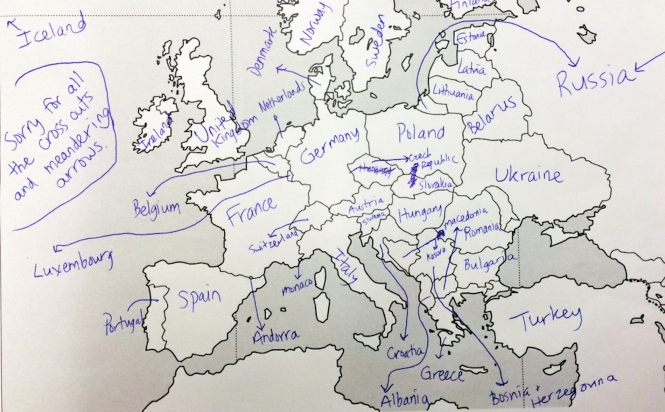 Iceland
Sorry for all
the cross outs
and meandering
arrows.
Norway
Sweden
Finland
Estonia
Latvia
Lithuania
Belarus
Russia
Denmark
Netherlands
Ireland
United
Kingdom
Germany
Poland
Czech
Republic
Slovakia
Ukraine
Belgium
France
Luxembourg
Austria
Hungary
Switzerland
Macedonia
Romania
Kosovo
Italy
Bulgaria
Monaco
Portugal
Spain
Andorra
Turkey
Croatia
Greece
Albania
Bosnia +
Herzegovina